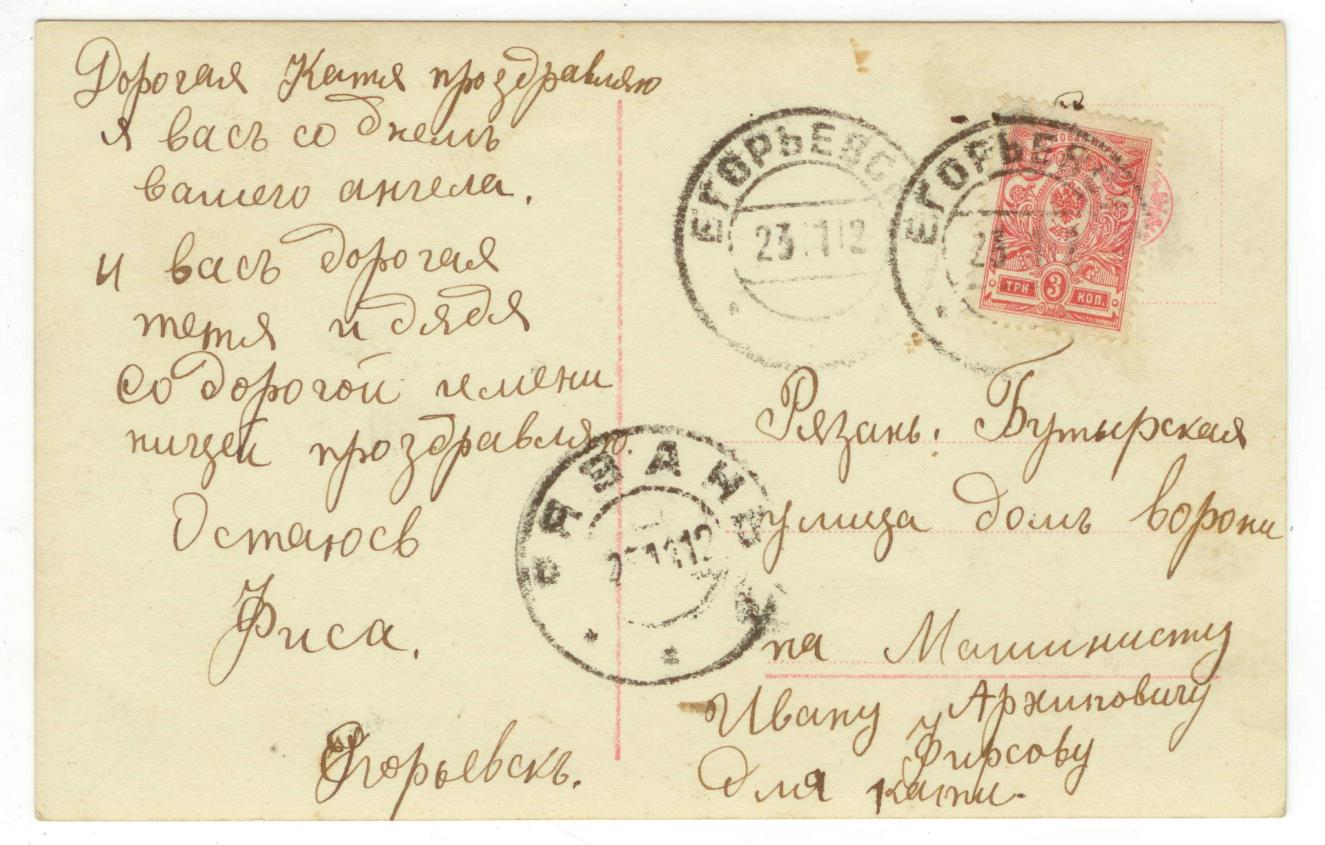 Дорогая Катя проздравляю
я васъ со днемъ
вашего ангела.
и васъ дорогая
тетя и дядя
со дорогой имени
ницей проздравляю.
Остаюсв
Фиса.
Егорьевскъ.
ЕГОРЬЕВСК
23.1.12
ЕГОРЬЕВСК
ТРИ 3 КОП.
Рязань. Бутырская
улица домъ ворони
на Машинисту
Ивану Архиповичу
Фирсову
для кати.
РЯЗАНЬ